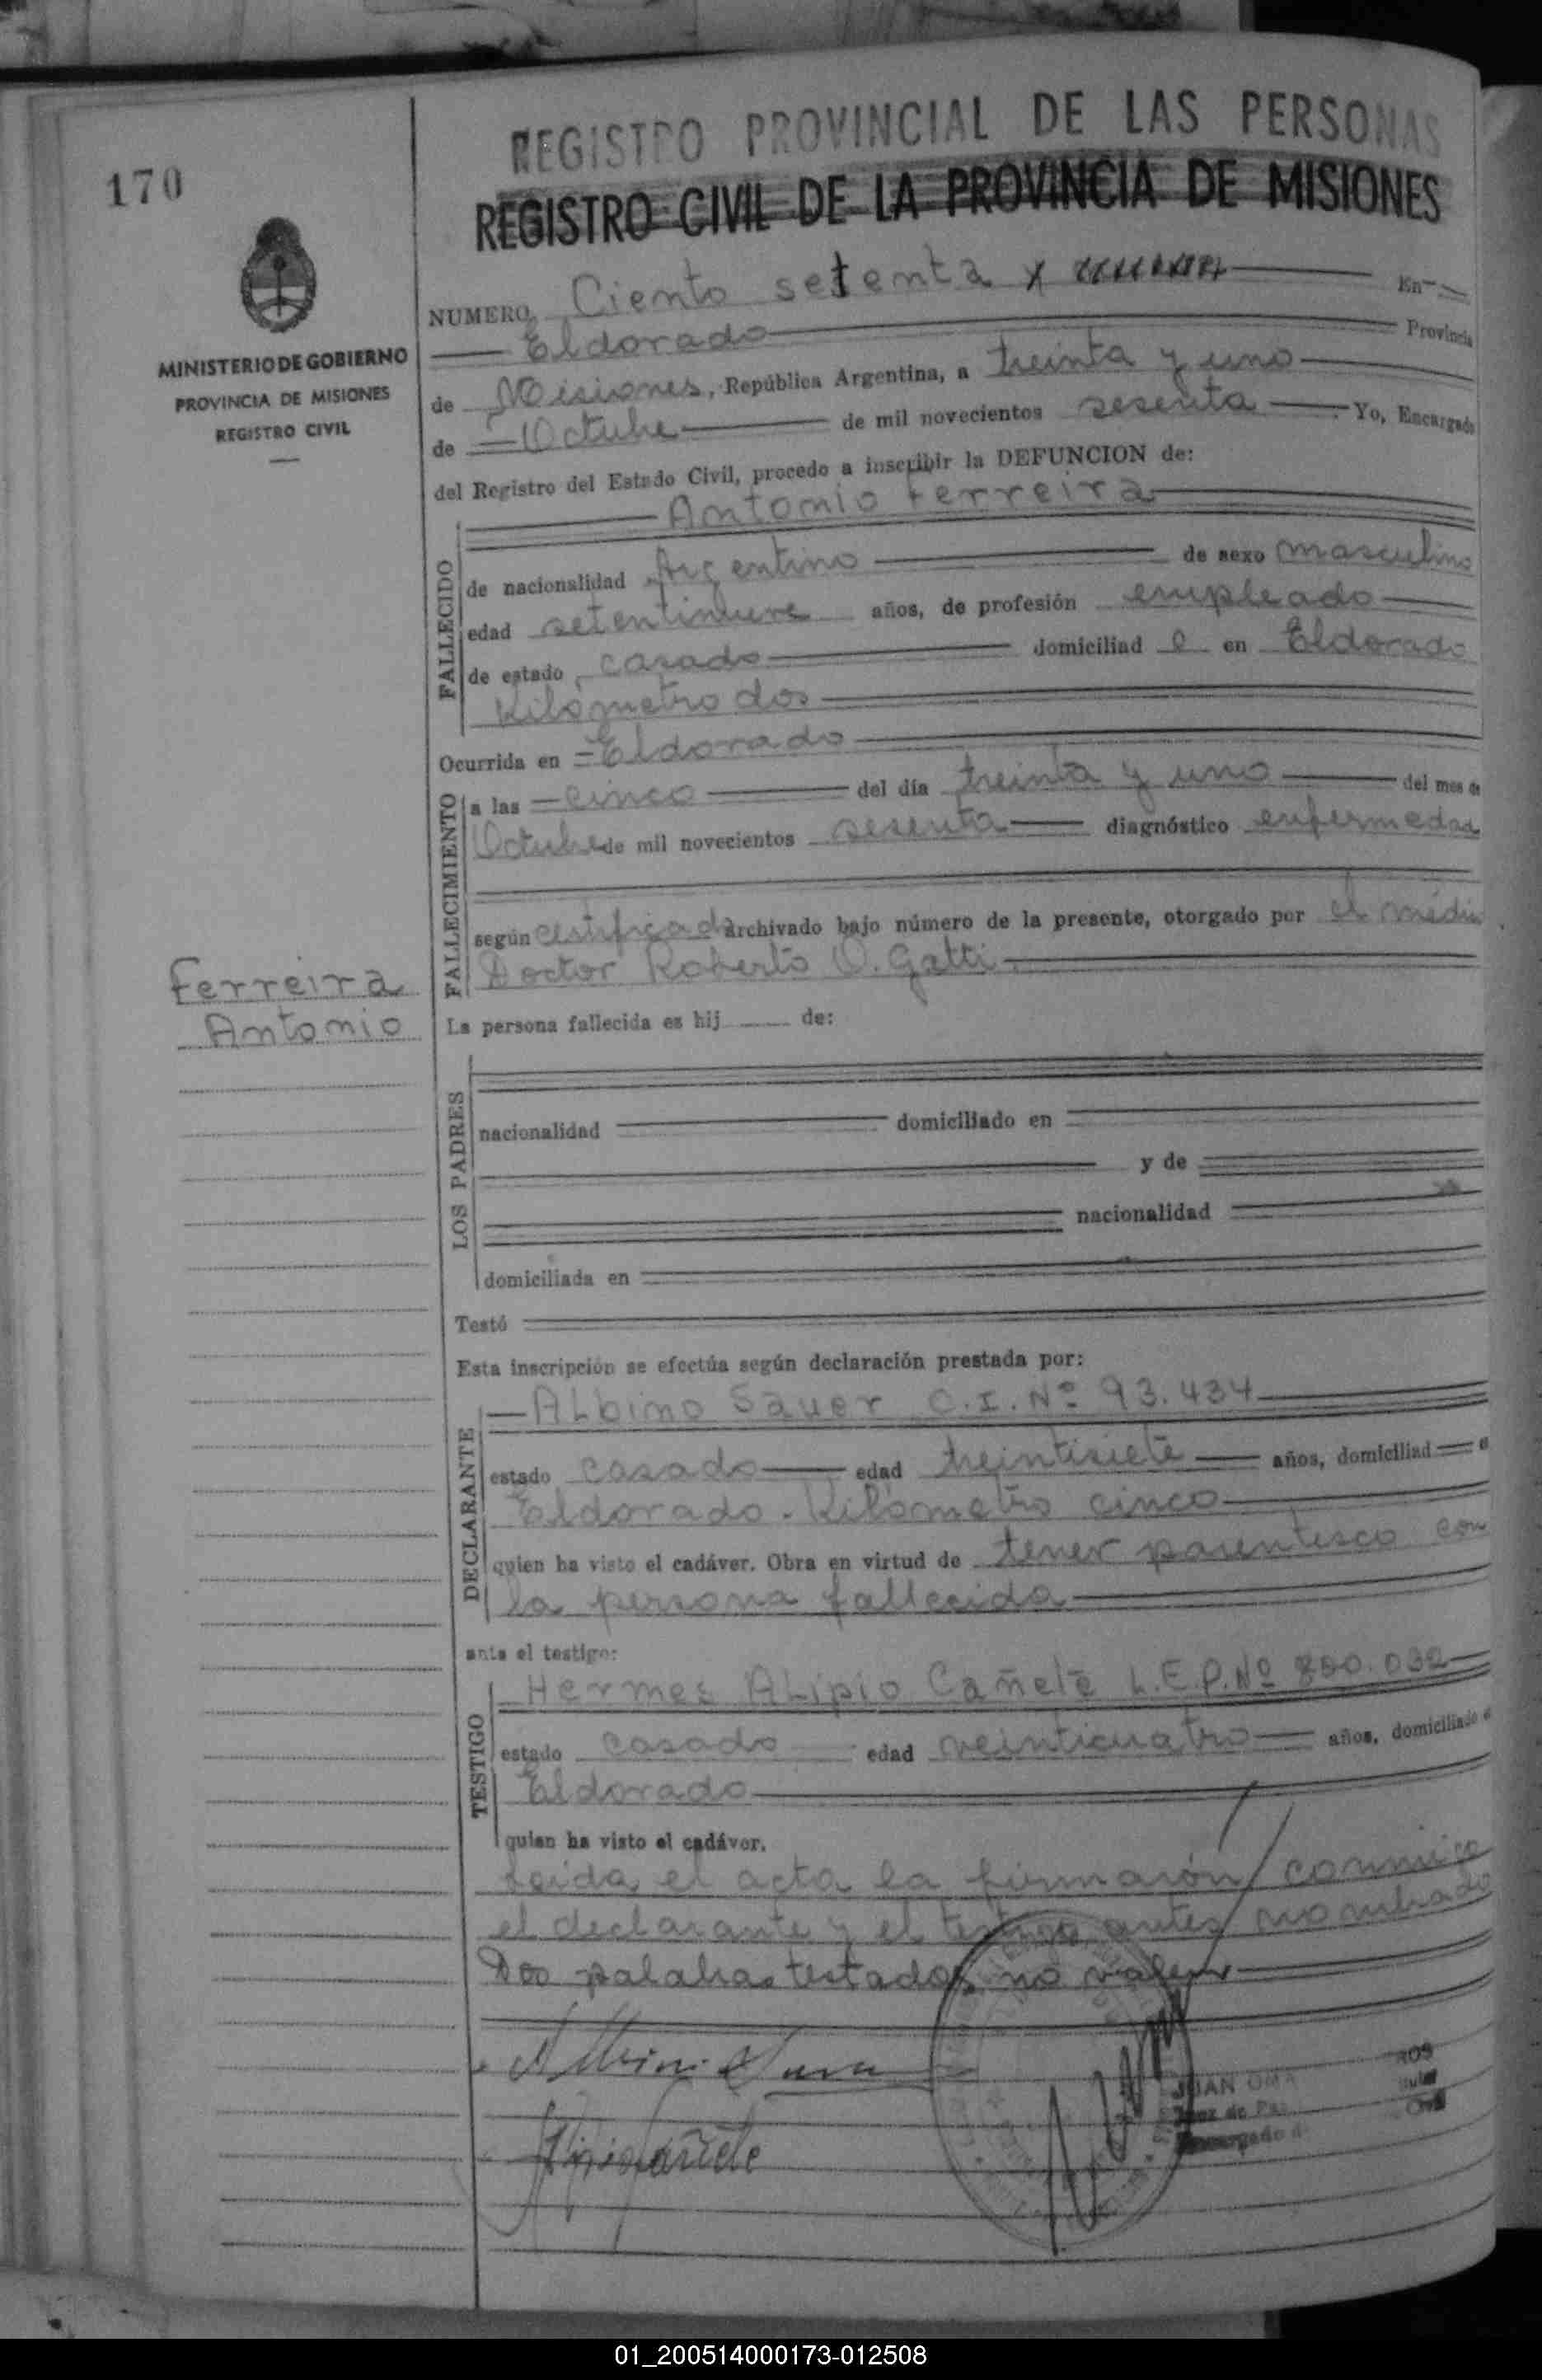 170
REGISTRO PROVINCIAL DE LAS PERSONAS
REGISTRO CIVIL DE LA PROVINCIA DE MISIONES
MINISTERIO DE GOBIERNO
PROVINCIA DE MISIONES
REGISTRO CIVIL
NUMERO Ciento setenta x En
Eldorado Provincia
de Misiones, República Argentina, a treinta y uno
de Octubre de mil novecientos sesenta Yo, Encargado
del Registro del Estado Civil, procedo a inscribir la DEFUNCION de:
Antonio Ferreira
FALLECIDO
de nacionalidad Argentino de sexo masculino
edad setentinueve años, de profesión empleado
de estado casado domiciliad o en Eldorado
Kilómetro dos
Ocurrida en Eldorado
FALLECIMIENTO
a las cinco del día treinta y uno del mes de
Octubre de mil novecientos sesenta diagnóstico enfermedad
según certificado archivado bajo número de la presente, otorgado por el médico
Doctor Roberto O. Gatti
Ferreira
Antonio
La persona fallecida es hij de:
LOS PADRES
nacionalidad domiciliado en
y de
nacionalidad
domiciliada en
Testó
Esta inscripción se efectúa según declaración prestada por:
DECLARANTE
Albino Sauer C.I. Nº 93.434
estado casado edad treintisiete años, domiciliad e
Eldorado. Kilómetro cinco
quien ha visto el cadáver. Obra en virtud de tener parentesco con
la persona fallecida
ante el testigo:
TESTIGO
Hermes Alipio Cañete L.E.P.Nº 800.032
estado casado edad veinticuatro años, domiciliado e
Eldorado
quien ha visto el cadáver.
Leida el acta la firmarón conmigo
el declarante y el testigo antes nombrado
Dos palabras testadas no valen
Albino Sauer
Alipio Cañete
JUAN OMA ROS
Juez de Paz
Encargado d Civil
01_200514000173-012508